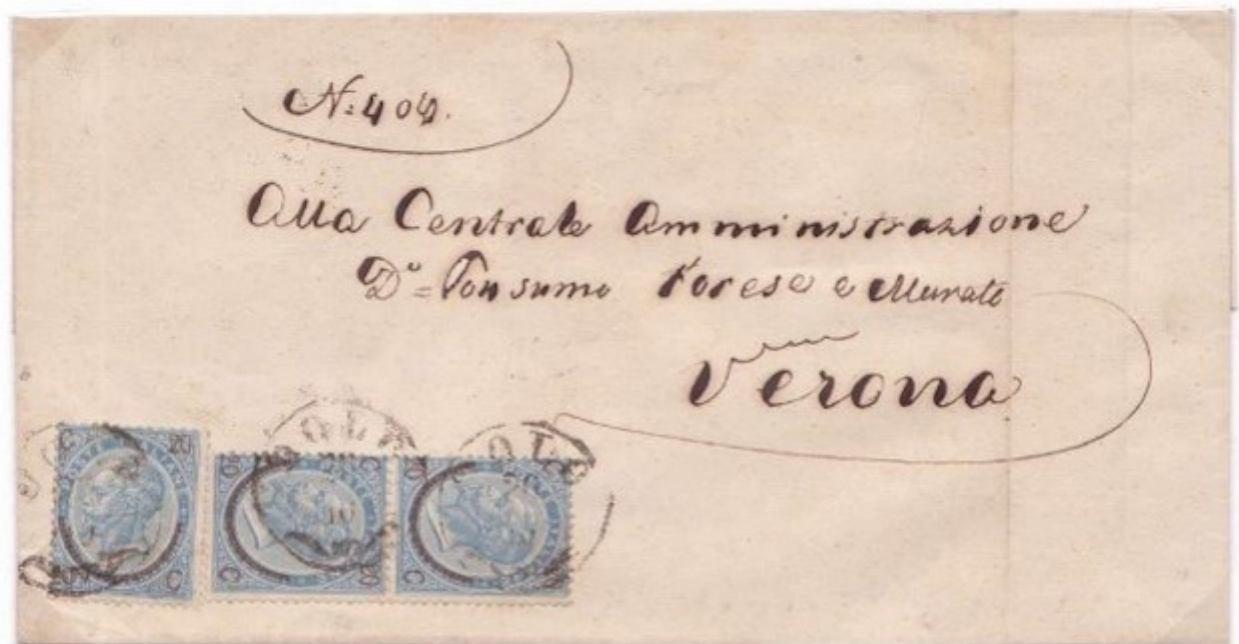 N: 404.
Alla Centrale Amministrazione
D.º = Consumo Forese e Murato
Verona
C 20
20 C
C 20
20
C